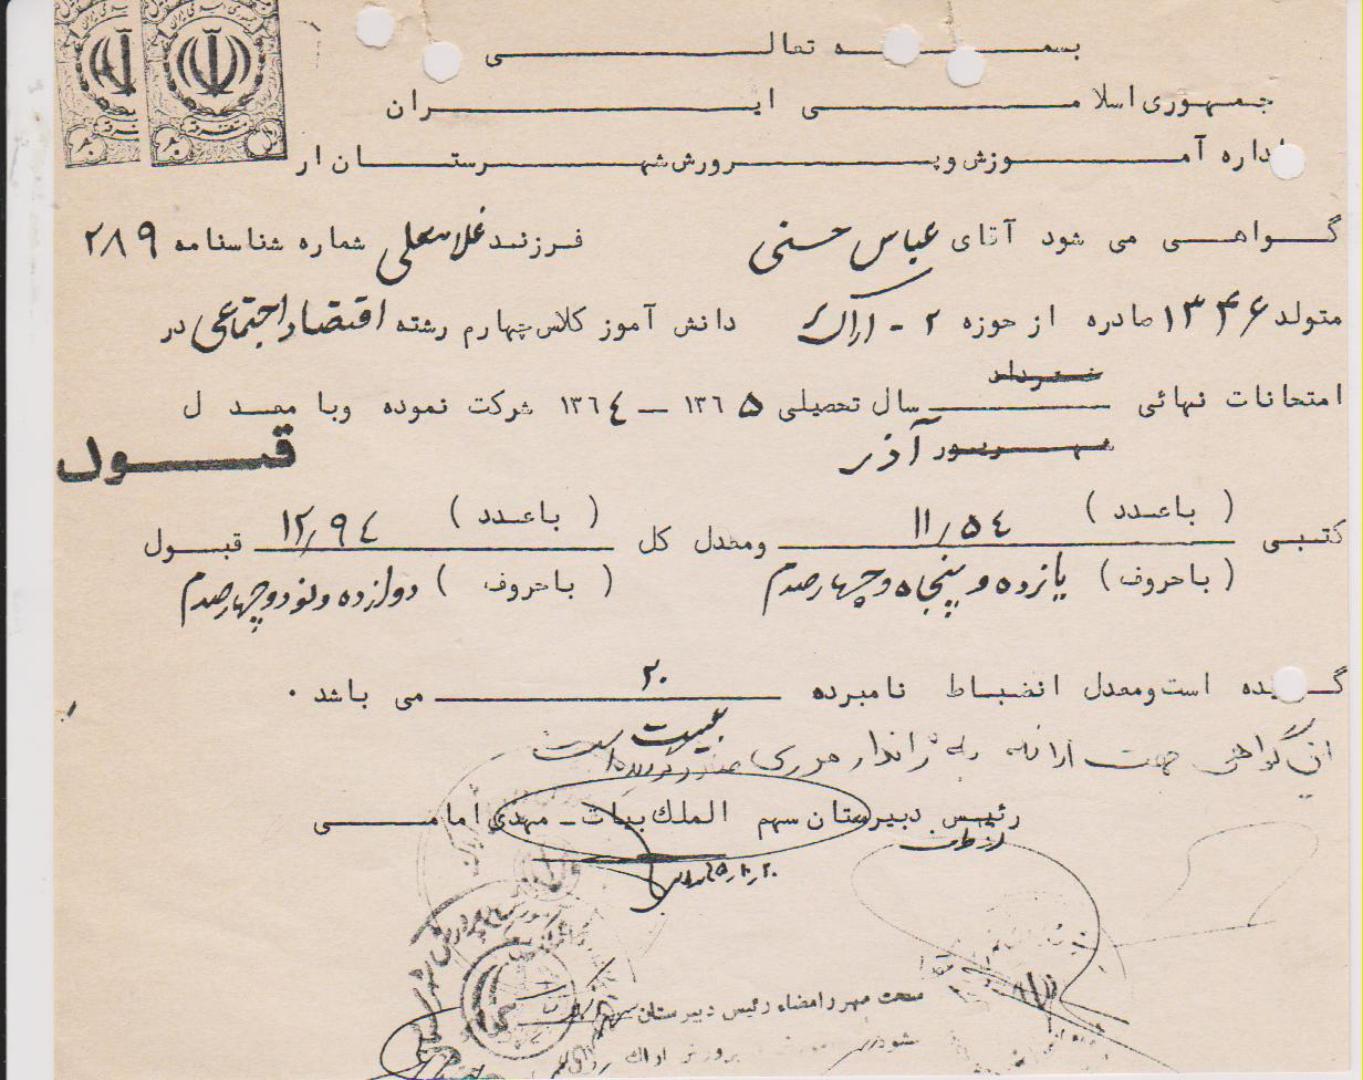 بسمه تعالی
جمهوری اسلامی ایران
اداره آموزش و پرورش شهرستان ار
گواهی می شود آقای عباس حسنی فرزند غلامعلی شماره شناسنامه ۲۸۹
متولد ۱۳۴۶ صادره از حوزه ۲ - اراک دانش آموز کلاس چهارم رشته اقتصاد اجتماعی در
خرداد
امتحانات نهائی سال تحصیلی ۱۳۶۵ — ۱۳۶۴ شرکت نموده وبا معدل
شهریور آذر
قبول
کتبی (باعدد) ۱۱/۵۴ ومعدل کل (باعدد) ۱۲/۹۴ قبول
(باحروف) یازده و پنجاه و چهار صدم (باحروف) دوازده و نود و چهار صدم
گردیده است ومعدل انضباط نامبرده ۲۰ می باشد .
بیست
این گواهی جهت ارائه به ژاندارمری صادر گردیده است
رئیس دبیرستان سهم الملک بیات - مهدی امامی
از طرف
۶۵/۱۰/۲۰
صحت مهر و امضاء رئیس دبیرستان
پرورش اراک